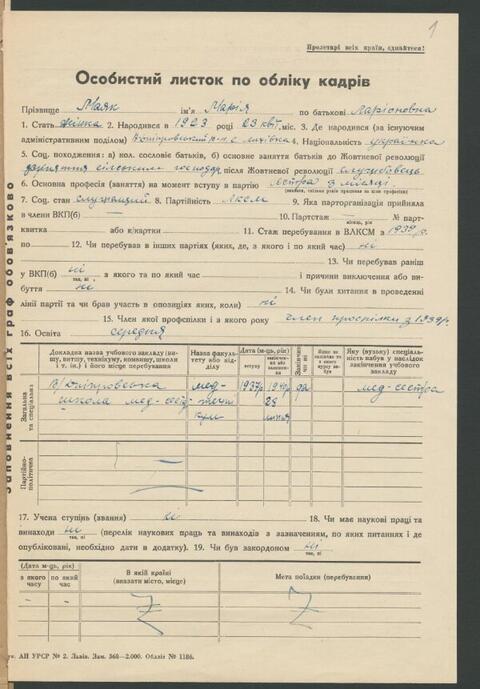 1
Пролетарі всіх країн, єднайтеся!
Особистий листок по обліку кадрів
Прізвище Маяк ім'я Марія по батькові Ларіоновна
1. Стать жінка 2. Народився в 1923 році 23 квіт. міс. 3. Де народився (за існуючим
адміністративним поділом) 4. Національність українка
5. Соц. походження: а) кол. сословіє батьків, б) основне заняття батьків до Жовтневої революції
після Жовтневої революції службовець
6. Основна професія (заняття) на момент вступу в партію
7. Соц. стан служащий 8. Партійність Лксм 9. Яка парторганізація прийняла
в члени ВКП(б) — 10. Партстаж — № парт-
місяць, рік
квитка або к/картки 11. Стаж перебування в ВЛКСМ з 1939 р.
по 12. Чи перебував в інших партіях (яких, де, з якого і по який час) ні
13. Чи перебував раніш
у ВКП(б) ні з якого та по який час і причини виключення або ви-
так, ні
буття ні 14. Чи були хитання в проведенні
лінії партії та чи брав участь в опозиціях яких, коли) ні
15. Член якої профспілки і з якого року член профспілки з 1939 р.
16. Освіта середня
Докладна назва учбового закладу (ви-
шу, втишу, технікуму, комвишу, школи
і т. ін.) і його місце перебування
Назва факуль-
тету або від-
ділу
Дата (м-ць, рік)
вступу
Закінчив
чи ні
Яку (вузьку) спеціаль-
ність набув у наслідок
закінчення учбового
закладу
Загальна
та спеціальна
школа мед-сест. 1937 р. 1940 р. мед-сестра
Партійно-
політична
—
17. Учена ступінь (звання) ні 18. Чи має наукові праці та
винаходи ні (перелік наукових праць та винаходів з зазначенням, по яких питаннях і де
так, ні
опубліковані, необхідно дати в додатку). 19. Чи був закордоном ні
так, ні
(Дата м-ць, рік)
з якого
часу
по який
час
В якій країні
(вказати місто, місце)
Мета поїздки (перебування)
- -
Заповнення всіх граф обов'язково
АН УРСР № 2. Льв. Зам. 368—2.000. Обліт № 1186.